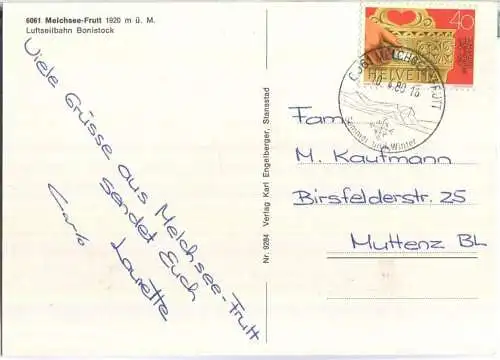 6061 Melchsee-Frutt 1920 m ü. M.
Luftseilbahn Bonistock
Viele Grüsse aus Melchsee-Frutt
sendet Euch
Laurette
Nr. 9284 Verlag Karl Engelberger, Stansstad
40
HELVETIA
6061 MELCHSEE-FRUTT
Sommer und Winter
Fam.
M. Kaufmann
Birsfelderstr. 25
Muttenz BL